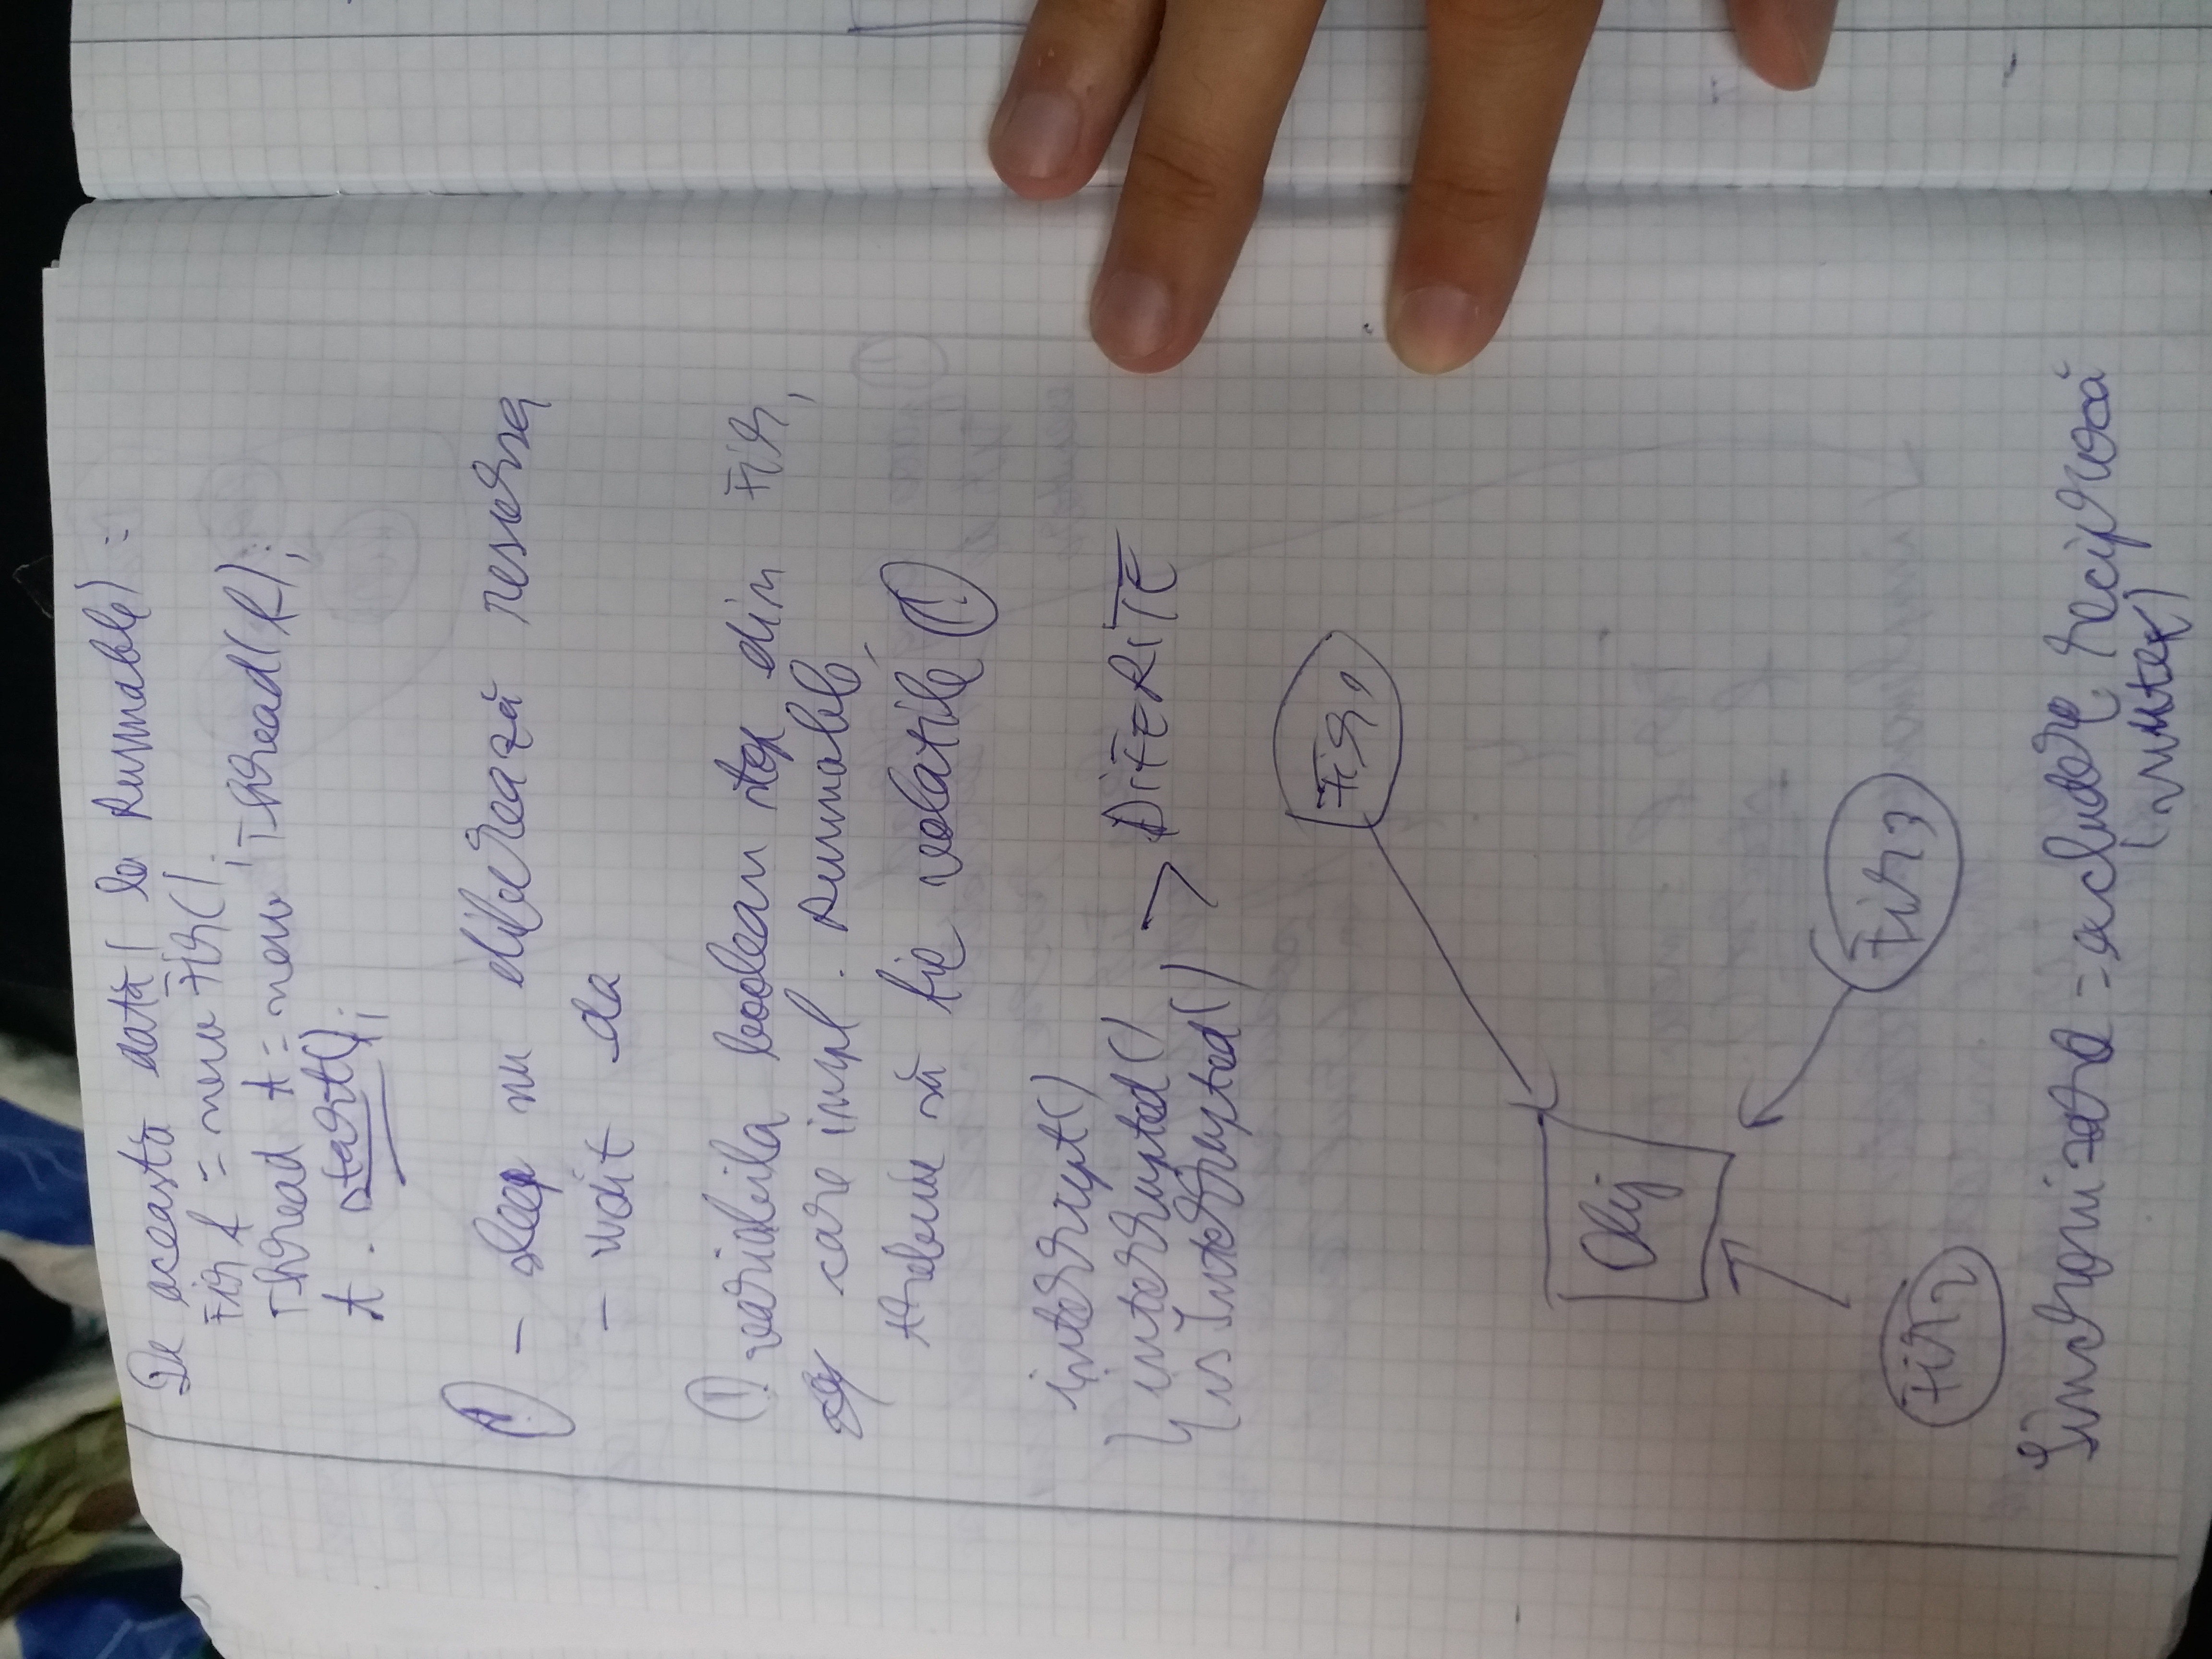 De această dată (la Runnable) :
Fir f = new Fir();
Thread t = new Thread(f);
t . start();
! - sleep nu eliberează resursa
- wait da
! variabila boolean stop din Fir,
care impl. Runnable,
trebuie să fie volatile !
interrupt()
interrupted()
isInterrupted() > DIFERITE
Fir1
Obj
Fir3
Fir2
Sincronizare = excludere reciprocă
(mutex)